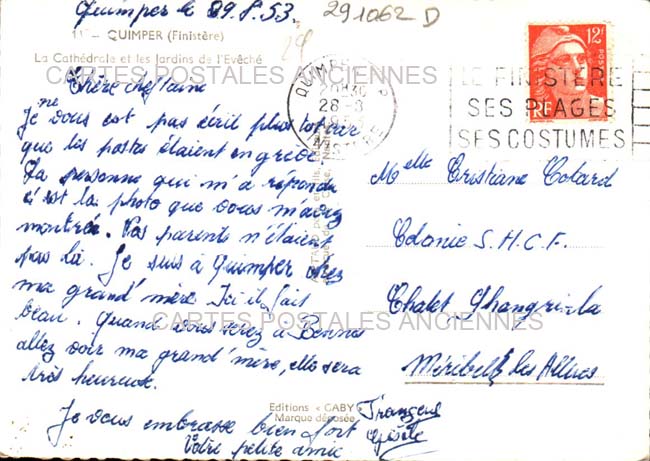 Quimper le 29.8.53.
291062 D
29
11 - QUIMPER (Finistère)
La Cathédrale et les Jardins de l'Evêché
CARTES POSTALES ANCIENNES
Chère cheftaine
Je ne vous est pas écrit plus tot car
que les postes étaient en grève
La personne qui m'a répondu
c'est la photo que vous m'avez
montrée. Vos parents n'étaient
pas là. Je suis à Quimper chez
ma grand' mère Ici il fais
beau. Quand vous serez à Rennes
allez voir ma grand' mère, elle sera
très heureuse.
Je vous embrasse bien fort
Votre petite amie
Françoise
Editions « GABY »
Marque déposée
QUIMPER
28-8
FINISTERE
LE FINISTERE
SES PLAGES
SES COSTUMES
12F
POSTES
RF
Melle Cristiane Colard
Colonie S.H.C.F.
Chalet Shangri-la
Méribel les Allues
CARTES POSTALES ANCIENNES